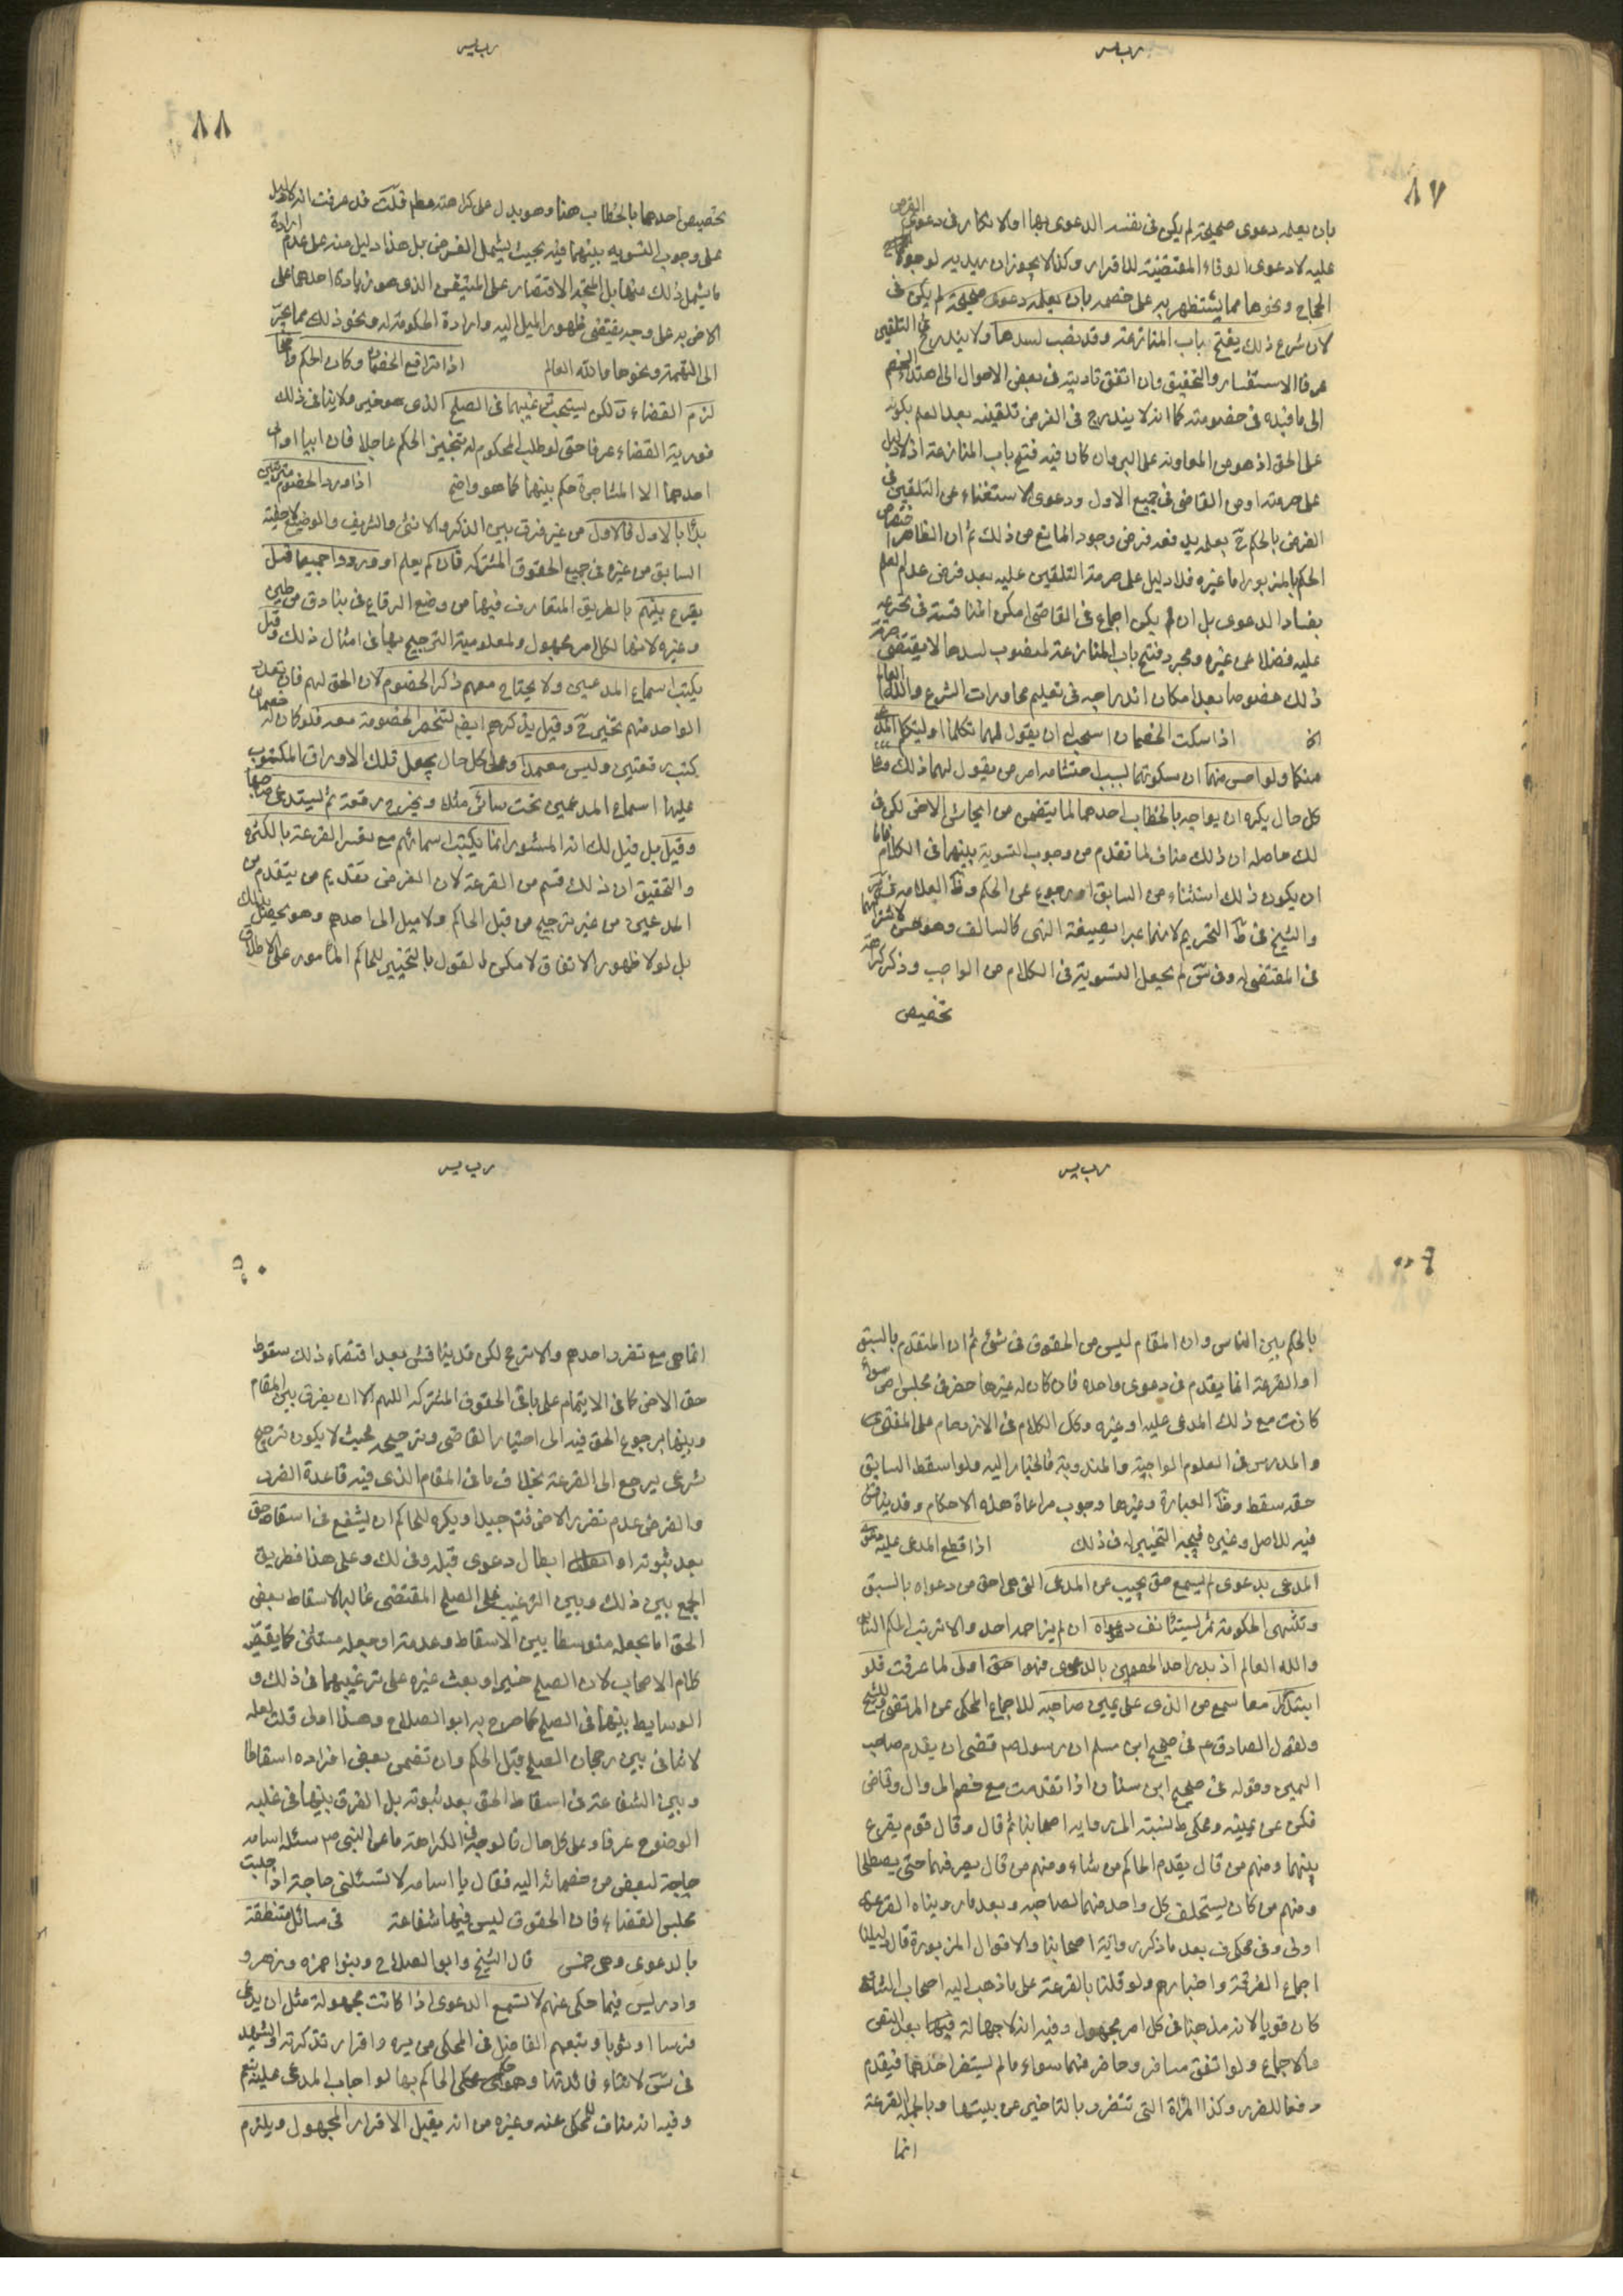 بان يعلمه دعوى صحيحة لم يكن فى نفسه الدعوى بها اولا نكار فى دعوى القرض
عليه لا دعوى الوفاء المقتضية للاقرار وكذا لا يجوز ان يهديه لوجوه
الحجاج ونحوها مما يستظهر به على خصمه بان يعلمه دعوى صحيحة لم يكن فى
لان شرع ذلك يفتح باب المنازعة وقد نصب لسدها ولا يندرج فى التلقين
عرفا الاستفسار والتحقيق وان اتفق تاديته فى بعض الاحوال الى اهتداء الخصم
الى ما فيده فى خصومته كما انه لا يندرج فى الفرض تلقينه بعد العلم بكونه
على الحق اذ هو من المعاونة على البر وان كان فيه فتح باب المنازعة اذ لا دليل
على حرمته او من القاضى فى جميع الاول ودعوى الاستغناء عن التلقين فى
الفرض بالحكم ح بعلمه يدفعه فرض وجود المانع من ذلك ثم ان الظاهر اختصاص
الحكم بالمزبور اما غيره فلا دليل على حرمة التلقين عليه بعد فرض عدم العلم
بفساد الدعوى بل ان لم يكن اجماع فى القاضى امكن المناقشة فى تحريمه
عليه فضلا عن غيره ومجرد فتح باب المنازعة المنصوب لسدها لا يقتضى حرمة
ذلك خصوصا بعد امكان اندراجه فى تعليم محاورات الشرع والله العالم
اذا سكت الخصمان استحب ان يقول لهما تكلما او ليتكلم المدعى
منكما ولو احس منهما ان سكوتهما لسبب احتشامه امر من يقول لهما ذلك وعلى
كل حال يكره ان يواجه بالخطاب احدهما لما يتضمن من ايحاش الاخر لكن فى
لك حاصله ان ذلك مناف لما تقدم من وجوب التسوية بينهما فى الكلام فاما
ان يكون ذلك استثناء من السابق او رجوع عن الحكم وظ العلامه فى
والشيخ فى ط التحريم لانهما عبرا بصيغة النهى كالسالف وهو حسن لاشتراكهما
فى المقتضى له وفى س لم يجعل التسوية فى الكلام من الواجب وذكر كراهة
تخصيص
تخصيص احدهما بالخطاب هنا وهو يدل على كراهته مطم قلت قد عرفت انه لا دليل
على وجوب التسويه بينهما فيه بحيث يشمل الفرض بل هذا دليل منه على عدم ارادة
ما يشمل ذلك منها بل المتجه الاقتصار على المتيقن الذى هو زيادة احدهما على
الاخر به على وجه يقتضى ظهور الميل اليه وارادة الحكومة له ونحو ذلك مما يجر
الى التهمة ونحوها والله العالم اذا ترافع الخصمان وكان الحكم واضحا
لزم القضاء ولكن يستحب ترغيبهما فى الصلح الذى هو خير ولا ينافى ذلك
فورية القضاء عرفا حتى لو طلب المحكوم له تنجيز الحكم عاجلا فان ابيا او ابى
احدهما الا المشاجرة حكم بينهما كما هو واضح اذا ورد الخصوم مترتبين
بدأ بالاول فالاول من غير فرق بين الذكر والانثى والشريف والوضيع لاحقية
السابق من غيره فى جميع الحقوق المشتركه فان لم يعلم او وردوا جميعا قيل
يقرع بينهم بالطريق المتعارف فيها من وضع الرقاع فى بنادق من طين
وغيره لانها لكل امر مجهول ولمعلومية الترجيح بها فى امثال ذلك وقيل
يكتب اسماء المدعيين ولا يحتاج معهم ذكر الخصوم لان الحق لهم فان تعدد خصمان
الواحد منهم تخير ح وقيل يذكرهم ايضا لتنحصر الخصومة معه فلو كان له
كتب رقعتين وليس معتمدا وعلى كل حال يجعل تلك الاوراق المكتوب
عليها اسماء المدعيين تحت ساتر مثلا ويخرج رقعة ثم ليستدعى صاحبها
وقيل بل قيل لك انه المشهور انما يكتب اسماءهم مع تعسر القرعة بالكثره
والتحقيق ان ذلك قسم من القرعة لان الغرض تقديم من يتقدم من
المدعيين من غير ترجيح من قبل الحاكم ولا ميل الى احدهم وهو يحصل بذلك
بل لولا ظهور الاتفاق لامكن القول بالتخيير للحاكم المامور على الاطلاق
بالحكم بين الناس وان المقام ليس من الحقوق فى شئ ثم ان المتقدم بالسبق
او القرعة انما يقدم فى دعوى واحده فان كان له غيرها حضر فى مجلس اخر سواء
كانت مع ذلك المدعى عليه او غيره وكك الكلام فى الازدحام على المفتى
والمدرس فى العلوم الواجبة والمندوبة فالخيار اليه ولو اسقط السابق
حقه سقط وظ العبارة وغيرها وجوب مراعاة هذه الاحكام وقد يناقش
فيه للاصل وغيره فيتجه التخيير له فى ذلك اذا قطع المدعى عليه دعوى
المدعى بدعوى لم يسمع حتى يجيب عن المدعى التى هى احق من دعواه بالسبق
وتنتهى الحكومة ثم ليستأنف دعواه ان لم يزاحمه احد والا ترتب الحكم الثانى
والله العالم اذ بدر احد الخصمين بالدعوى فهو احق اولى لما عرفت فلو
ابتدأ كل معا سمع من الذى على يمين صاحبه للاجماع المحكى عن المرتضى والشيخ
ولقول الصادق ع فى صحيح ابن مسلم ان رسول ص قضى ان يقدم صاحب
اليمين وقوله فى صحيح ابن سنان اذا تقدمت مع خصم الى وال وقاض
فكن عن يمينه ومحكى ط نسبته الى روايه اصحابنا ثم قال وقال قوم يقرع
بينهما ومنهم من قال يقدم الحاكم من شاء ومنهم من قال يصرفهما حتى يصطلحا
ومنهم من كان يستحلف كل واحد منهما لصاحبه وبعد ما رويناه القرعة
اولى وفى محكى ف بعد ما ذكر رواية اصحابنا والاقوال المزبورة قال دليلنا
اجماع الفرقة واخبارهم ولو قلنا بالقرعة على ما ذهب اليه اصحاب الشافعى
كان قويا لانه مذهبنا فى كل امر مجهول وفيه انه لا جهالة فيها بعد النص
والاجماع ولو اتفق مسافر وحاضر فهما سواء ما لم يستضر احدهما فيقدم
دفعا للضرر وكذا المراة التى تتضرر بالتاخير عن بيتها وبالجملة القرعة
انما
انما هى مع تفرد احدهم والا ترجح لكن قد يناقش بعد اقتضاء ذلك سقوط
حق الاخر كما فى الايتمام على باقى الحقوق المشتركه اللهم الا ان يفرق بين المقام
وبينها برجوع الحق فيه الى اختيار القاضى وترجيحه بحيث لا يكون ترجيح
شرعى يرجع الى القرعة بخلاف ما فى المقام الذى فيه قاعدة الضرر
والفرض عدم تضرر الاخر فتم جيدا ويكره للحاكم ان يشفع فى اسقاط حق
بعد ثبوته او ابطال دعوى قبله وفى لك وعلى هذا فطريق
الجمع بين ذلك وبين الترغيب على الصلح المقتضى غالبا لاسقاط بعض
الحق اما بجعله متوسطا بين الاسقاط وعدمه او جعله مستثنى كما يقتضيه
كلام الاصحاب لان الصلح خير او بعث غيره على ترغيبهما فى ذلك و
الوسايط بينهما فى الصلح كما صرح به ابو الصلاح وهذا اولى قلت لعله
لا تنافى بين رجحان الصلح قبل الحكم وان تضمن بعض افراده اسقاطا
وبين الشفاعة فى اسقاط الحق بعد ثبوته بل الفرق بينهما فى غايه
الوضوح عرفا وعلى كل حال فالوجه فى الكراهة ما عن النبى ص سئله اسامه
حاجة لبعض من خصمائه اليه فقال يا اسامه لا تسئلنى حاجة اذا جلست
مجلس القضاء فان الحقوق ليس فيها شفاعة فى مسائل متعلقة
بالدعوى وهى خمس قال الشيخ وابو الصلاح وبنوا حمزه وزهره و
وادريس فيما حكى عنهم لا تسمع الدعوى اذا كانت مجهولة مثل ان يدعى
فرسا او ثوبا وتبعهم الفاضل فى المحكى من يره واقرار تذكرته والشهيد
فى س لانتفاء فائدتها وهو حكم الحاكم بها لو اجاب المدعى عليه بنعم
وفيه انه مناف للمحكى عنه وغيره من انه يقبل الاقرار المجهول ويلزم